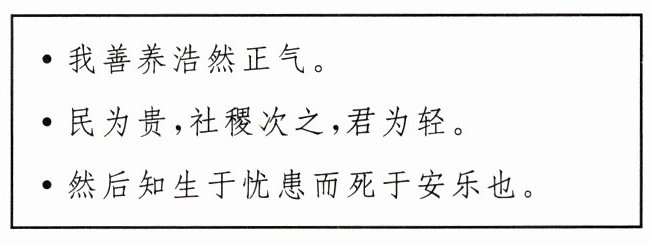 • 我善养浩然正气。
• 民为贵,社稷次之,君为轻。
• 然后知生于忧患而死于安乐也。